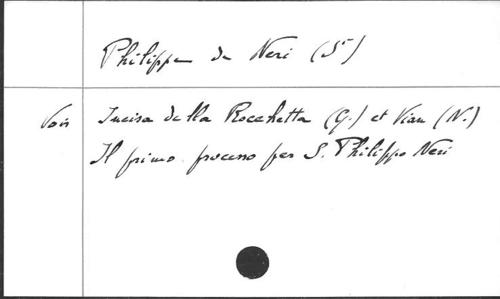 Philippe de Neri (St)
Voir Incisa della Rocchetta (G.) et Vian (N.)
Il primo processo per S. Philippo Neri